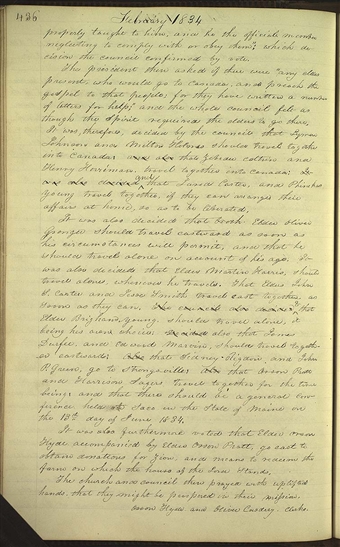 436
February 1834
properly taught to him, and he the official member
neglecting to comply with or obey them; which de-
cision the council confirmed by vote.
The president then asked if there were any elders
present, who would go to Canada, and preach the
gospel to that people; for they have written a number
of letters for help; and the whole council felt as
though the Spirit required the elders to go there.
It was, therefore, decided by the council that Lyman
Johnson and Milton Holmes should travel together
into Canada: and that Zebedee Coltrin and
Henry Herriman, travel together into Canada:
and that Jared Carter, and Phinehas
Young travel together, if they can arrange their
affairs at home, so as to be liberated,
It was also decided that Elder Oliver
Granger should travel eastward as soon as
his circumstances will permit, and that he
should travel alone on account of his age. It
was also decided that Elder Martin Harris, should
travel alone, whenever he travels. That Elder John
S. Carter and Jesse Smith travel east together, as
soon as they can. that
Elder Brigham Young should travel alone, it
being his own choice: also that James
Durfee, and Edward Marvin, should travel togeth-
er eastward: that Sidney Rigdon, and John
P. Green, go to Strongsville: that Orson Pratt
and Harrison Sagers travel together for the time
being: and that there should be a general con-
ference held at Saco in the State of Maine on
the 13th day of June 1834.
It was also furthermore voted that Elder Orson
Hyde accompanied by Elder Orson Pratt, go east to
obtain donations for Zion, and means to redeem the
farm on which the house of the Lord stands,
The church and council then prayed with uplifted
hands, that they might be prospered in their mission.
Orson Hyde and Oliver Cowdery. clerks.